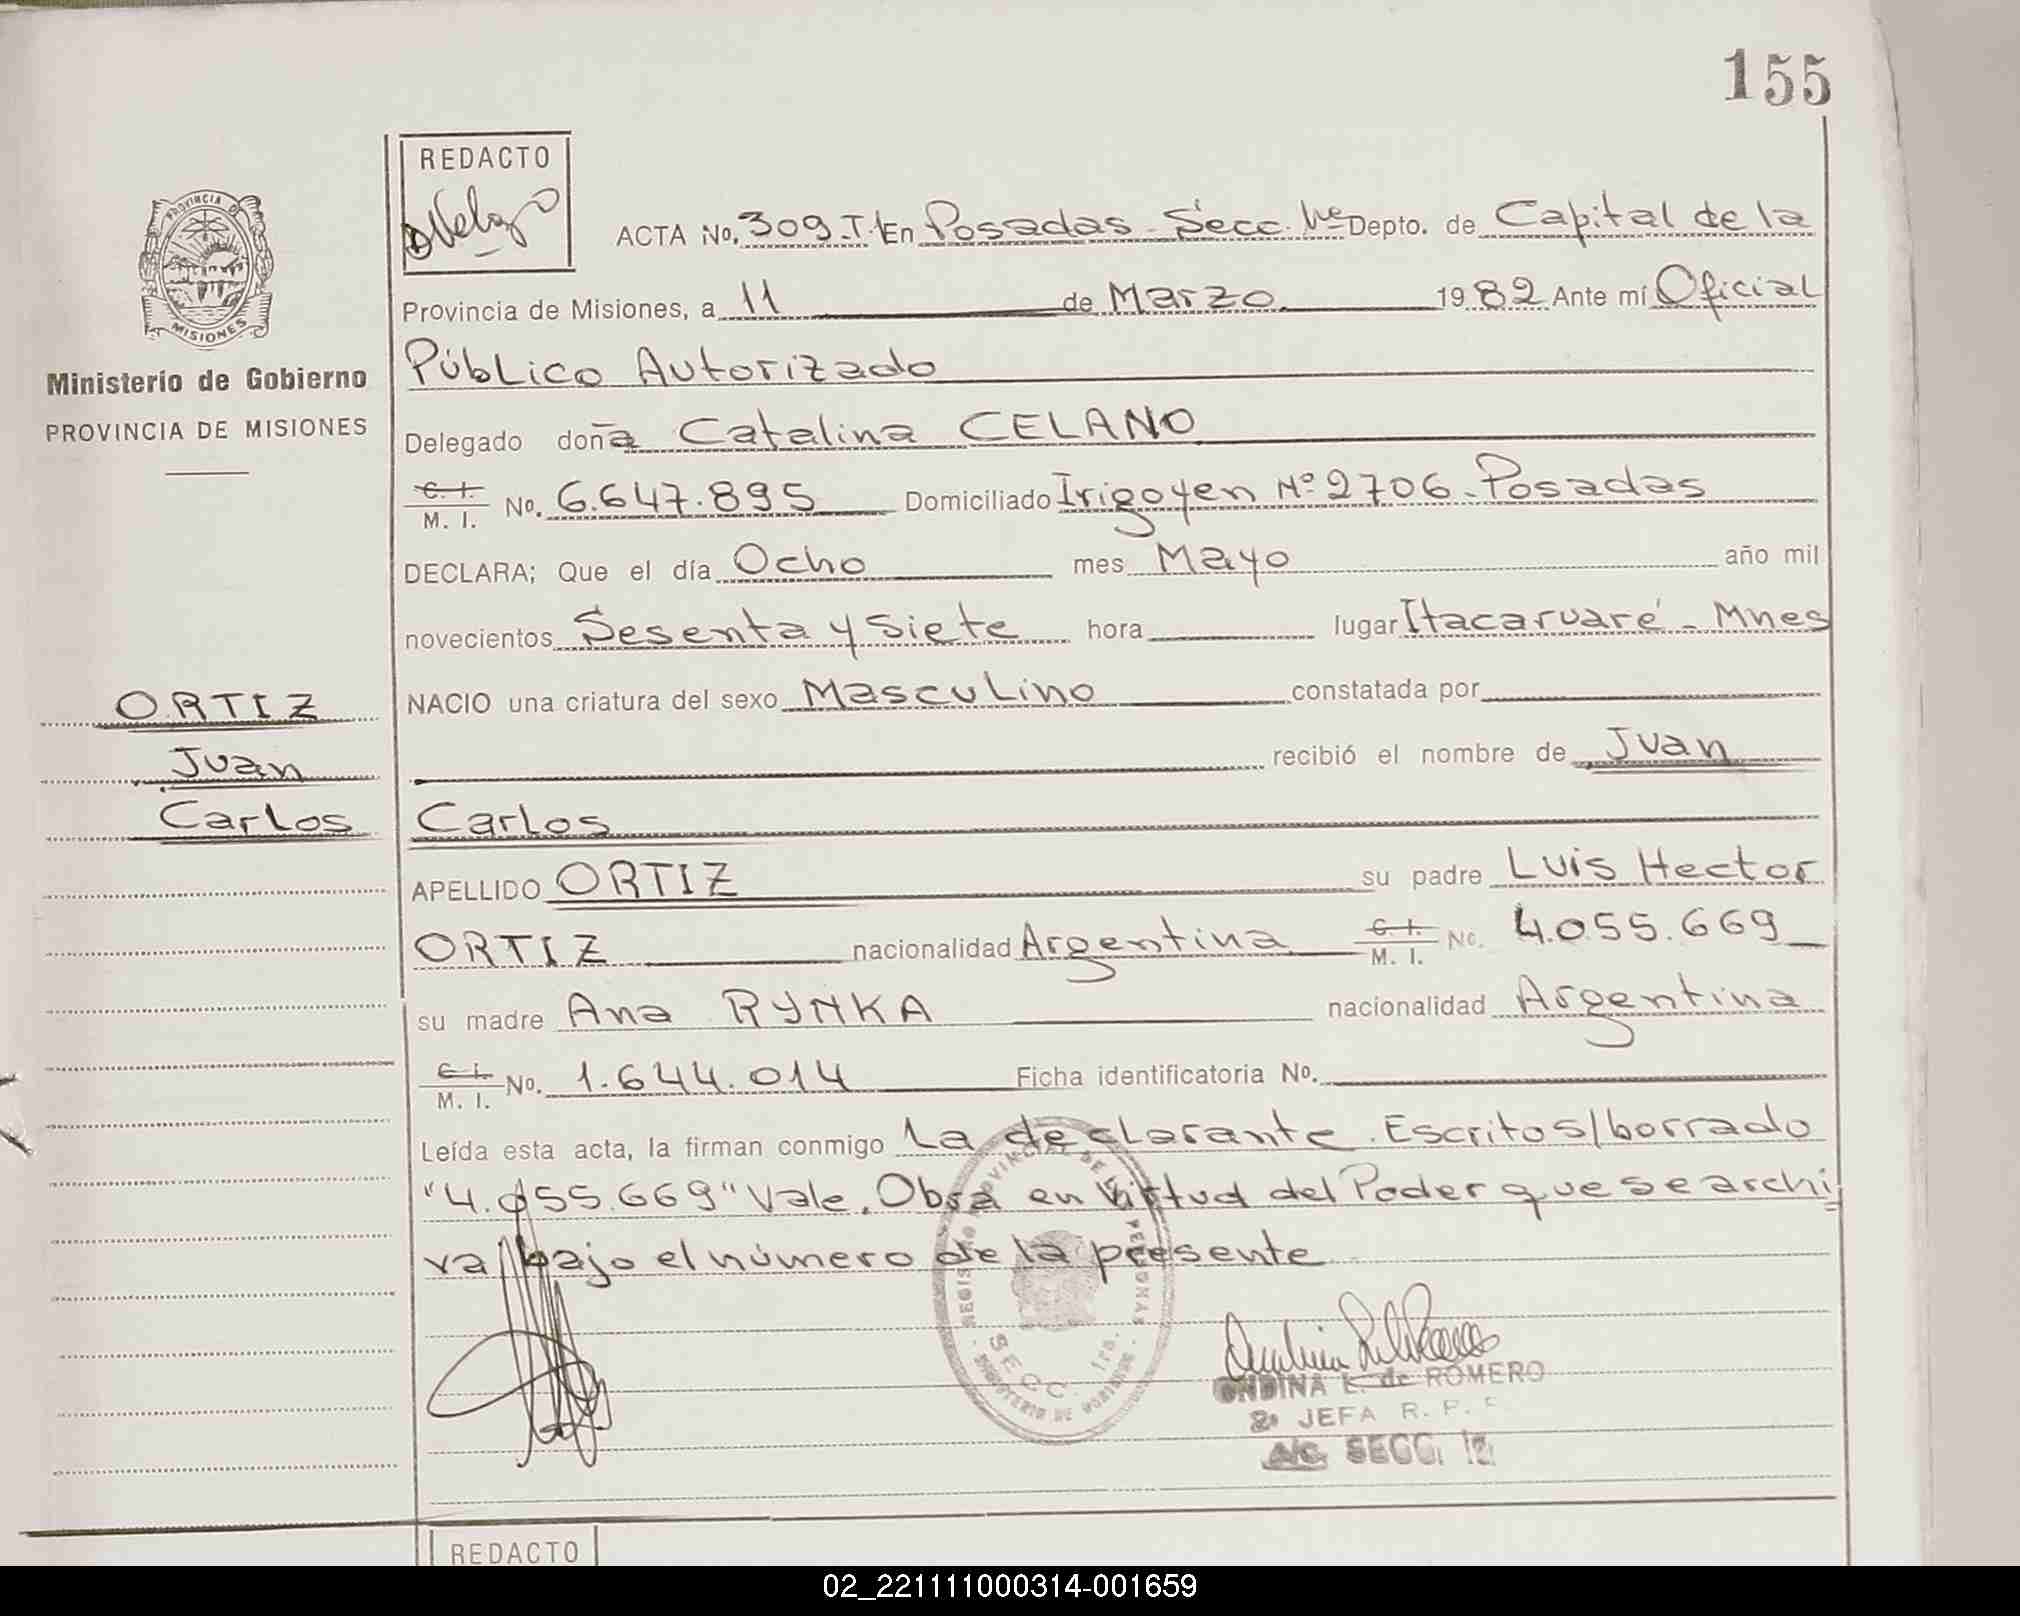 155
REDACTO
PROVINCIA DE
MISIONES
Ministerio de Gobierno
PROVINCIA DE MISIONES
ORTIZ
Juan
Carlos
ACTA No. 309.T.I En Posadas - Secc. 1ra Depto. de Capital de la
Provincia de Misiones, a 11 de Marzo 1982 Ante mí Oficial
Público Autorizado
Delegado doña Catalina CELANO
C. I. M. I. No. 6.647.895 Domiciliado Irigoyen Nº 2706 - Posadas
DECLARA; Que el día Ocho mes Mayo año mil
novecientos Sesenta y Siete hora lugar Itacaruaré - Mnes
NACIO una criatura del sexo Masculino constatada por
recibió el nombre de Juan
Carlos
APELLIDO ORTIZ su padre Luis Hector
ORTIZ nacionalidad Argentina C. I. M. I. No. 4.055.669
su madre Ana RYNKA nacionalidad Argentina
C. I. M. I. No. 1.644.014 Ficha identificatoria No.
Leída esta acta, la firman conmigo La declarante. Escritos/borrado
"4.055.669" Vale. Obra en Virtud del Poder que se archi
va bajo el número de la presente
SECC. 1ra.
ONDINA L. de ROMERO
2º JEFA R. P.
A/C. SECC. 1ª
REDACTO
02_221111000314-001659